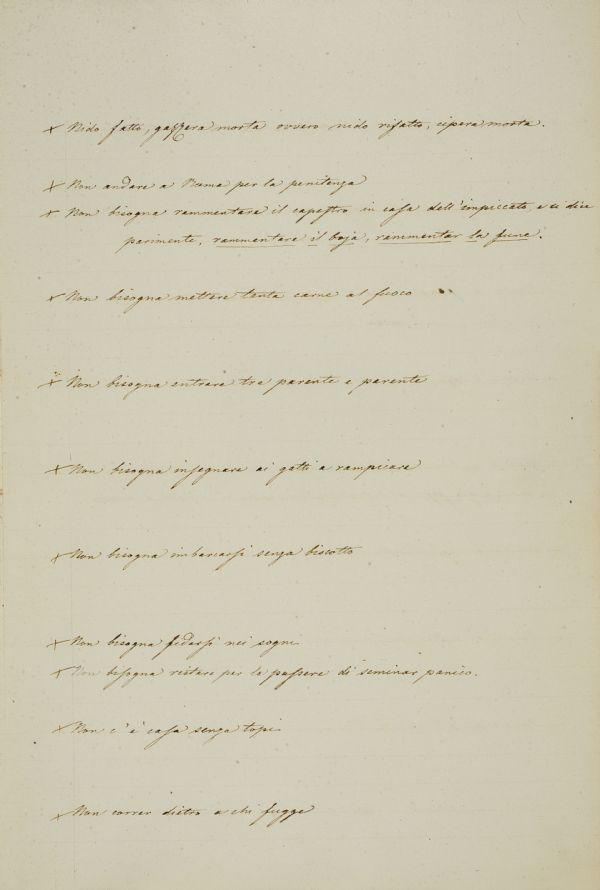 x Nido fatto, gazzera morta ovvero nido rifatto, cipera morta.
x Non andare a Roma per la penitenza
x Non bisogna rammentare il capestro in casa dell'impiccato, e si dice
parimente, rammentare il boja, rammentar la fune.
x Non bisogna mettere tanta carne al fuoco
x Non bisogna entrare tra parente e parente
x Non bisogna insegnare ai gatti a rampicare
x Non bisogna imbarcassi senza biscotto
x Non bisogna fidassi nei sogni
x Non bisogna restare per le passere di seminar panico.
x Non c'è casa senza topi
x Non correr dietro a chi fugge